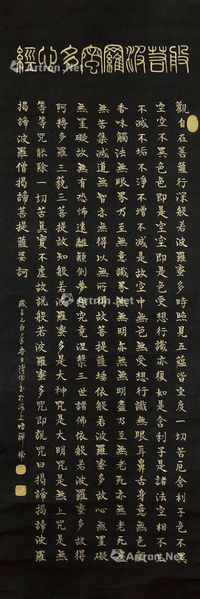 般若波羅蜜多心經
觀自在菩薩行深般若波羅蜜多時照見五蘊皆空度一切苦厄舍利子色不異
空空不異色色即是空空即是色受想行識亦復如是舍利子是諸法空相不生
不滅不垢不淨不增不減是故空中無色無受想行識無眼耳鼻舌身意無色聲
香味觸法無眼界乃至無意識界無無明亦無無明盡乃至無老死亦無老死盡
無苦集滅道無智亦無得以無所得故菩提薩埵依般若波羅蜜多故心無罣礙
無罣礙故無有恐怖遠離顛倒夢想究竟涅槃三世諸佛依般若波羅蜜多故得
阿耨多羅三藐三菩提故知般若波羅蜜多是大神咒是大明咒是無上咒是無
等等咒能除一切苦真實不虛故說般若波羅蜜多咒即說咒曰揭諦揭諦波羅
揭諦波羅僧揭諦菩提薩婆訶